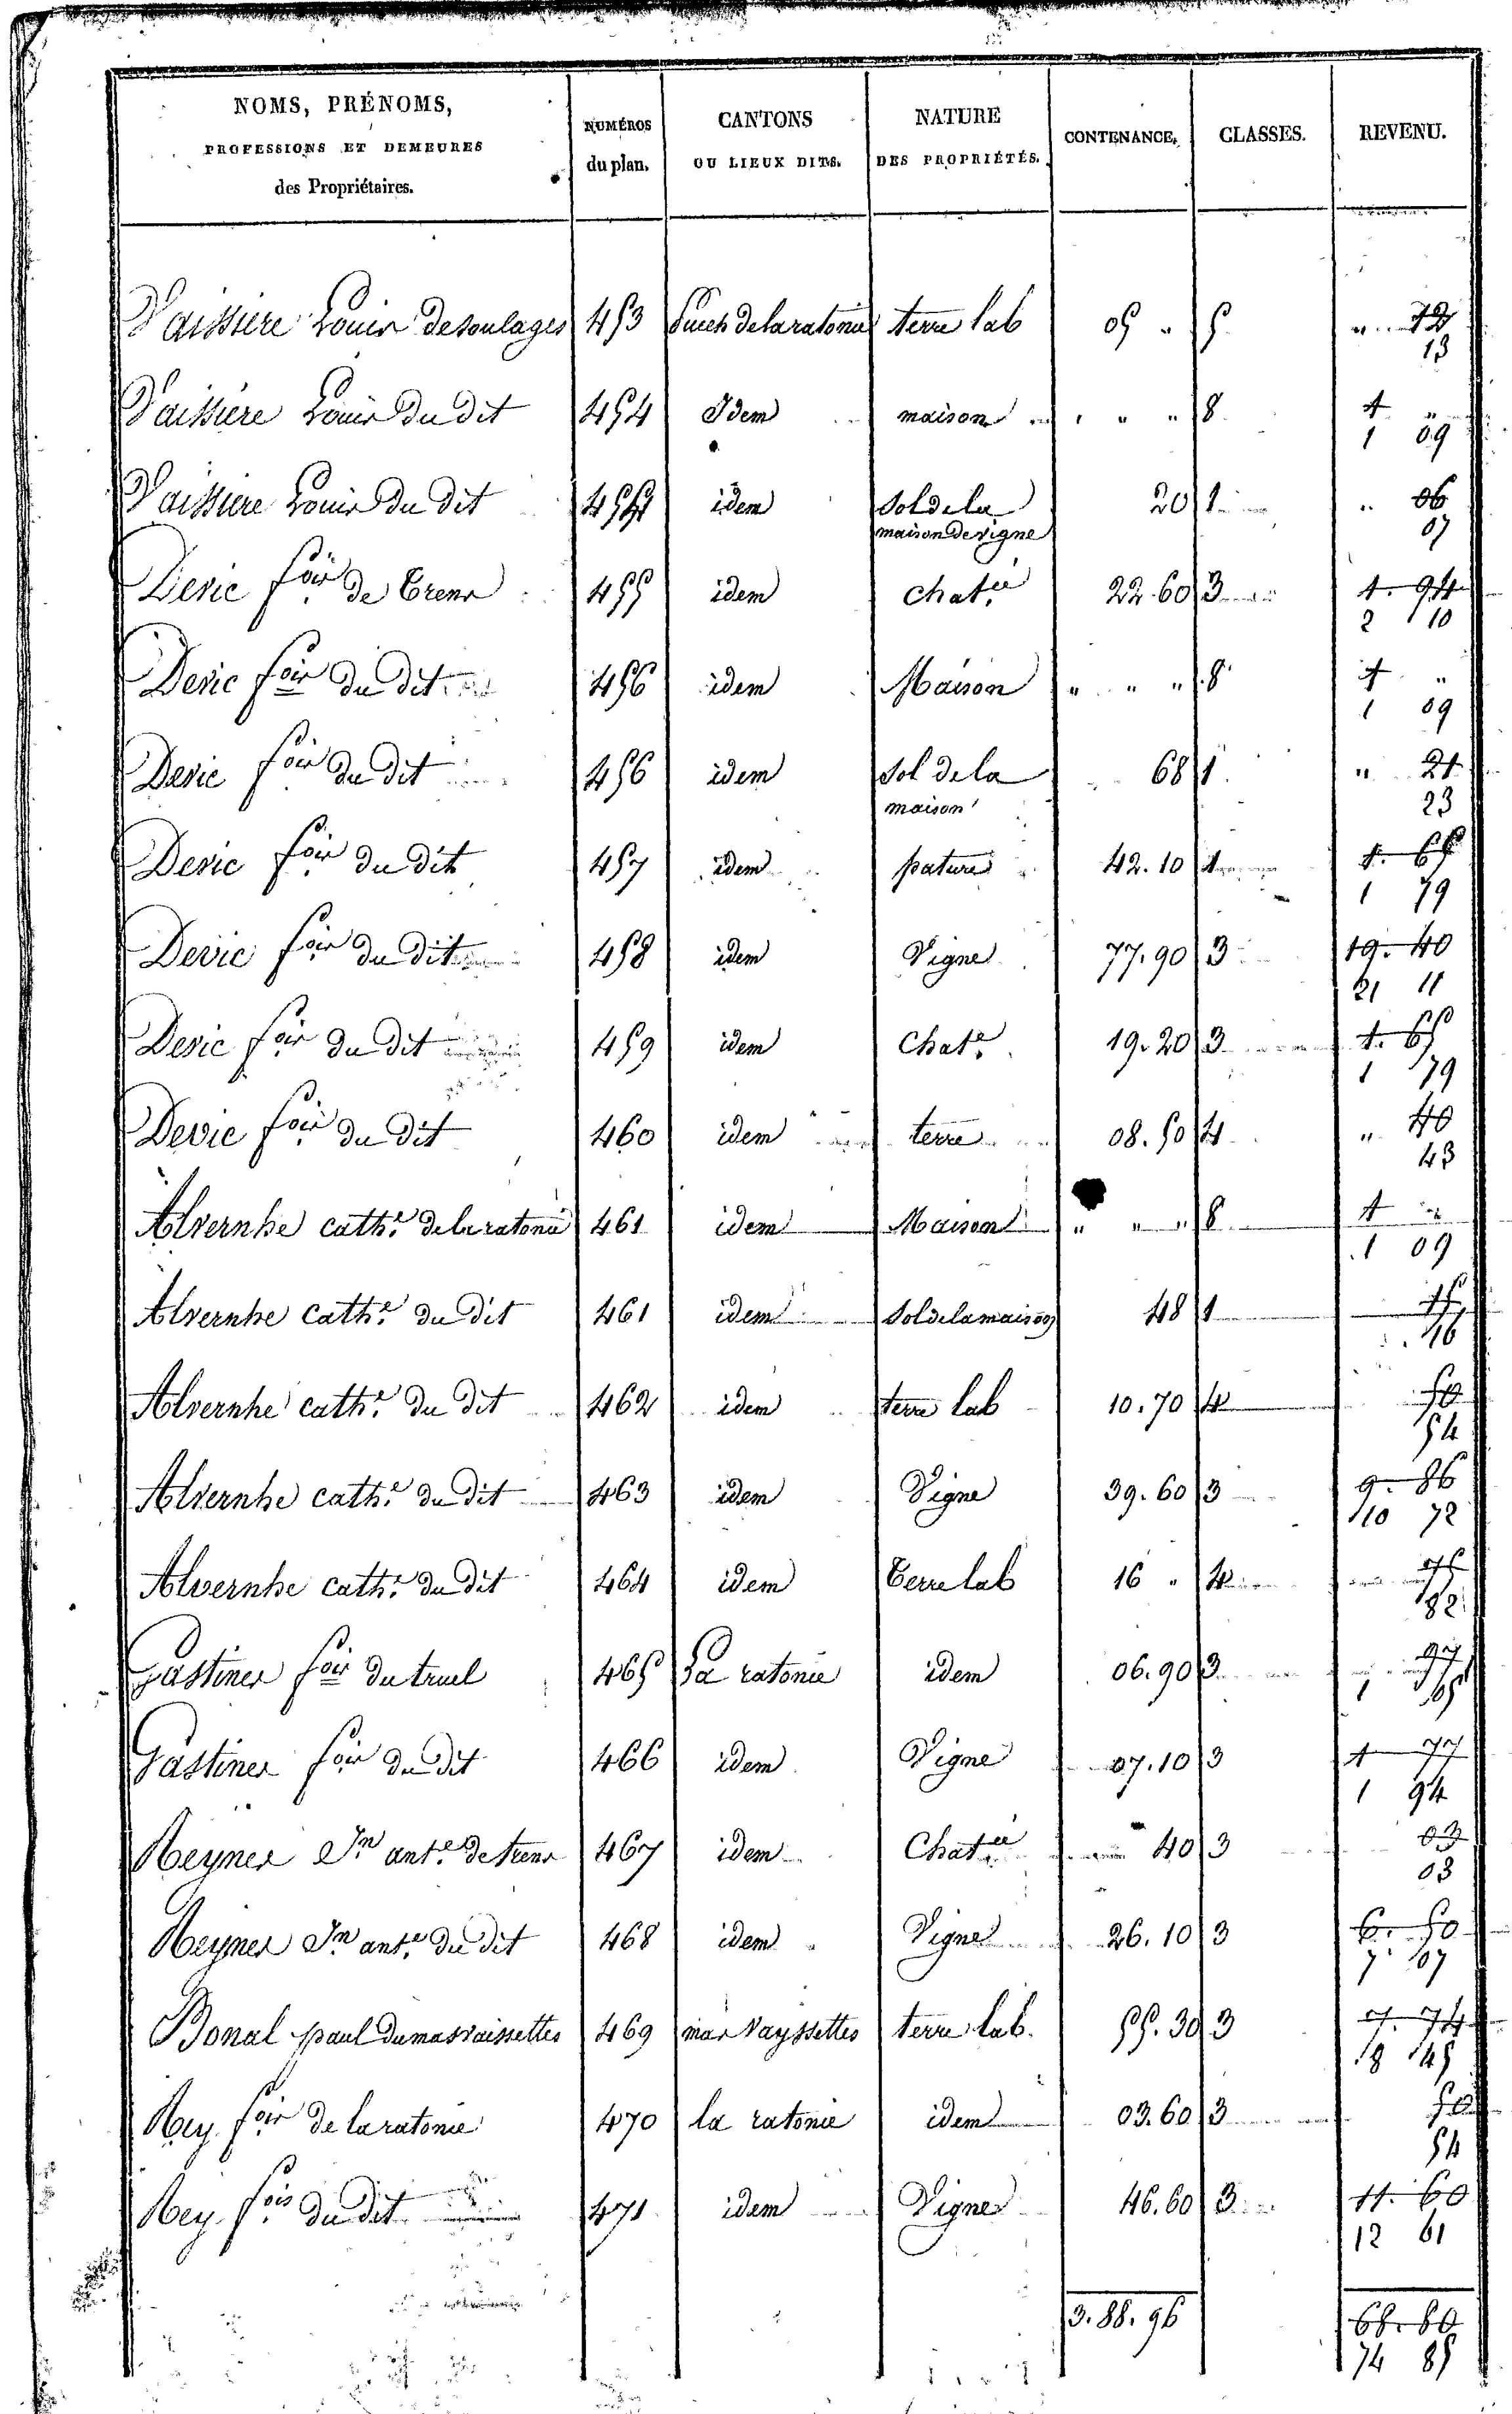 NOMS, PRÉNOMS,
PROFESSIONS ET DEMEURES
des Propriétaires.
NUMÉROS
du plan.
CANTONS
OU LIEUX DITS.
NATURE
DES PROPRIÉTÉS.
CONTENANCE.
CLASSES.
REVENU.
Vaissiere Louis de soulages 453 Puech de la ratonie terre lab 05 " 5 " 12
13
Vaissiere Louis du dit 454 Idem maison " " " 8 1 "
1 09
Vaissiere Louis du dit 454 idem Sol de la 20 1 " 06
maison de vigne 07
Devic fois de Trens 455 idem chat.ée 22.60 3 1. 94
2 10
Devic fois du dit 456 idem Maison " " " 8 1 "
1 09
Devic fois du dit 456 idem sol de la 68 1 " 21
maison 23
Devic fois du dit 457 idem pature 42.10 1 1. 65
1 79
Devic fois du dit 458 idem Vigne 77.90 3 19. 40
21 11
Devic fois du dit 459 idem Chat.e 19.20 3 1. 65
1 79
Devic fois du dit 460 idem terre 08.50 4 " 40
43
Alvernhe cath.e de la ratonie 461 idem Maison " " " 8 1 "
1 09
Alvernhe cath.e du dit 461 idem Sol de la maison 48 1 15
16
Alvernhe cath.e du dit 462 idem terre lab 10.70 4 50
54
Alvernhe cath.e du dit 463 idem Vigne 39.60 3 9. 86
10 72
Alvernhe cath.e du dit 464 idem Terre lab 16 " 4 75
82
Gastines fois du truel 465 La ratonie idem 06.90 3 97
1 05
Gastines fois du dit 466 idem Vigne 07.10 3 1 77
1 94
Neynes Jn ant.e de trens 467 idem Chat.ée 40 3 03
03
Neynes Jn ant.e du dit 468 idem Vigne 26.10 3 6. 50
7 07
Bonal paul du mas vaissettes 469 mas Vayssettes terre lab. 55.30 3 7. 74
8 45
Rey fois de la ratonie 470 la ratonie idem 03.60 3 50
54
Rey fois du dit 471 idem Vignes 46.60 3 11. 60
12 61
3.88.96 68. 80
74 85